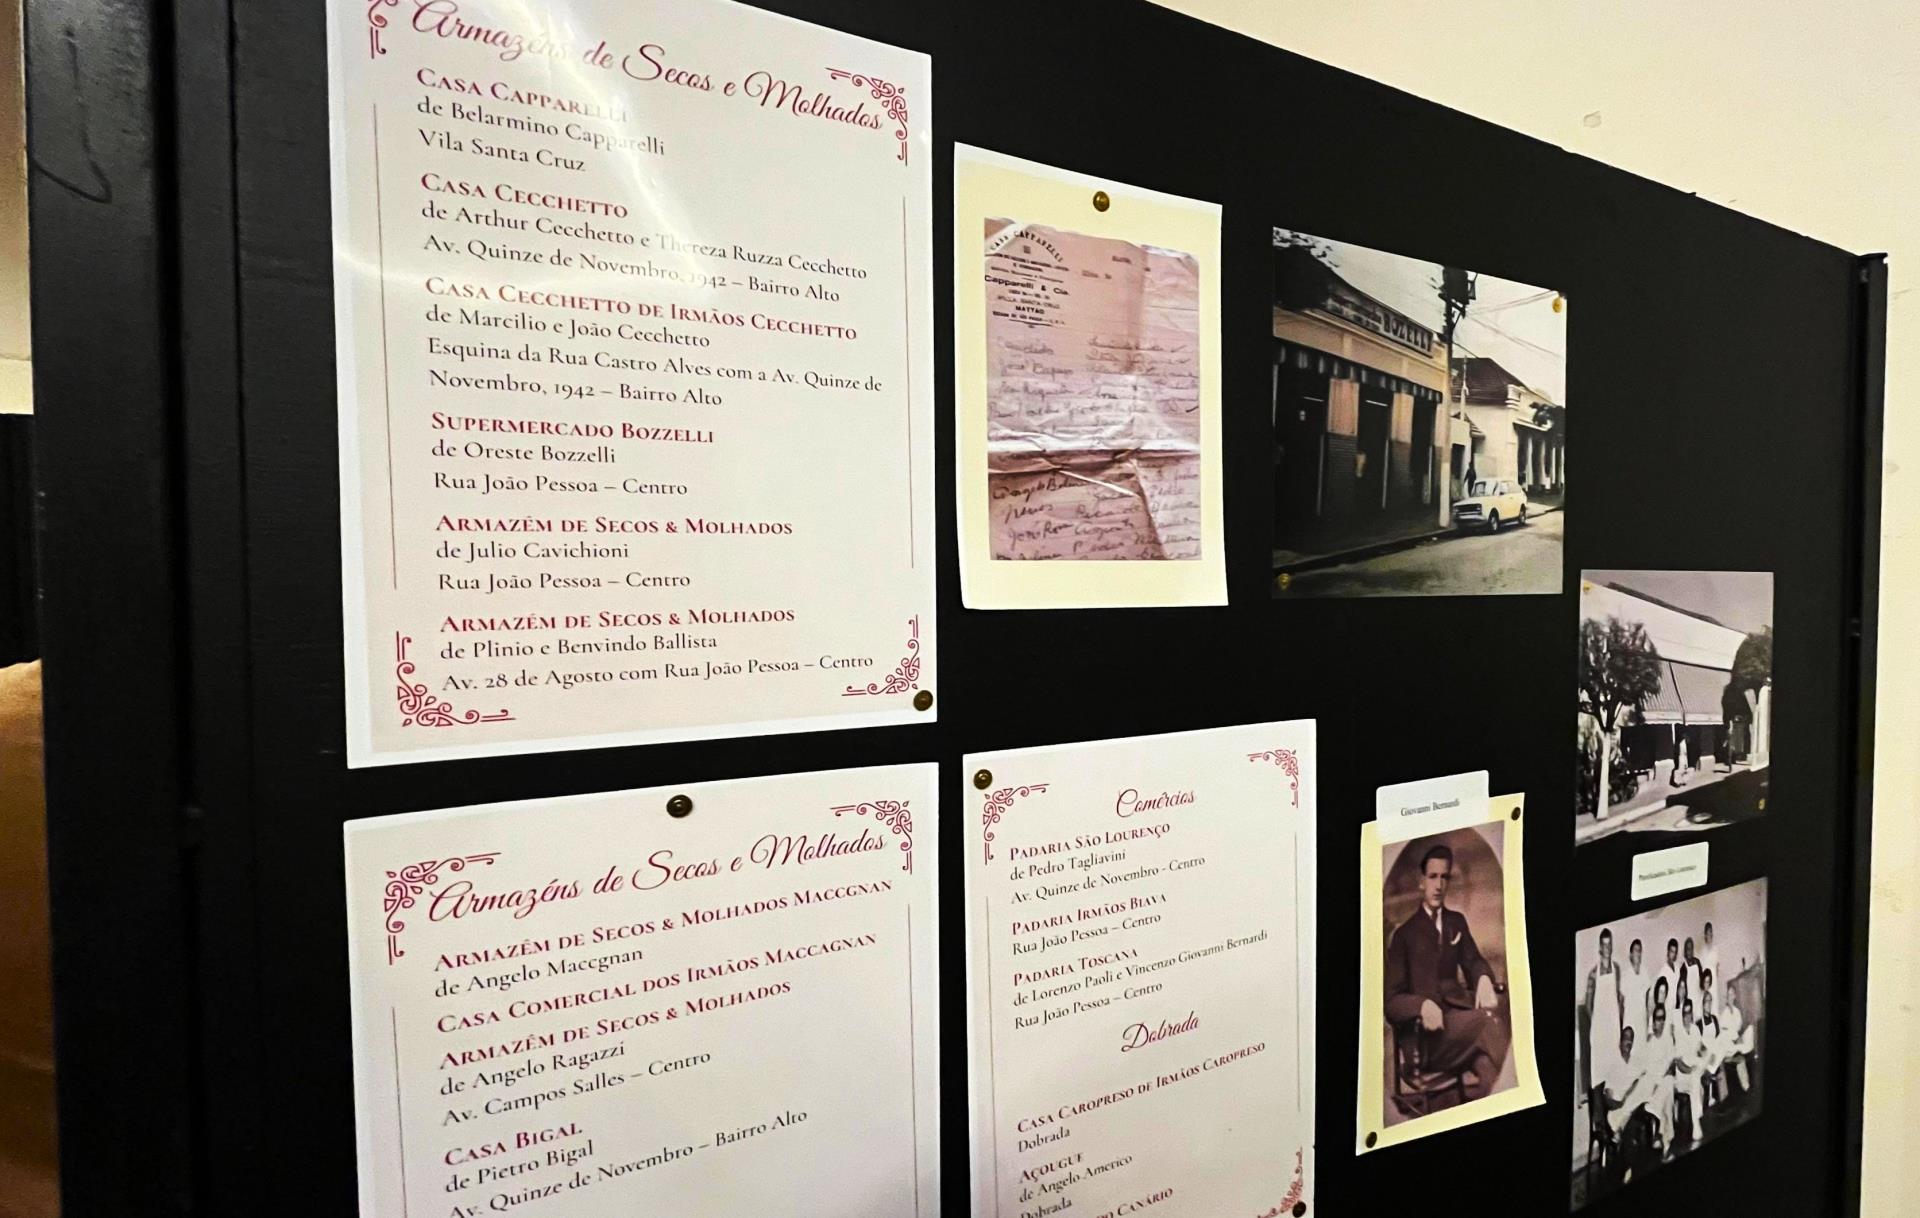 Armazéns de Secos e Molhados
Casa Capparelli
de Belarmino Capparelli
Vila Santa Cruz
Casa Cecchetto
de Arthur Cecchetto e Thereza Ruzza Cecchetto
Av. Quinze de Novembro, 1942 – Bairro Alto
Casa Cecchetto de Irmãos Cecchetto
de Marcilio e João Cecchetto
Esquina da Rua Castro Alves com a Av. Quinze de
Novembro, 1942 – Bairro Alto
Supermercado Bozzelli
de Oreste Bozzelli
Rua João Pessoa – Centro
Armazém de Secos & Molhados
de Julio Cavichioni
Rua João Pessoa – Centro
Armazém de Secos & Molhados
de Plinio e Benvindo Ballista
Av. 28 de Agosto com Rua João Pessoa – Centro
CASA CAPPARELLI
Capparelli & Cia.
VILLA SANTA CRUZ
MATTÃO
BOZELLI
Armazéns de Secos e Molhados
Armazém de Secos & Molhados Maccgnan
de Angelo Maccgnan
Casa Comercial dos Irmãos Maccagnan
Armazém de Secos & Molhados
de Angelo Ragazzi
Av. Campos Salles – Centro
Casa Bigal
de Pietro Bigal
Av. Quinze de Novembro – Bairro Alto
Comércios
Padaria São Lourenço
de Pedro Tagliavini
Av. Quinze de Novembro - Centro
Padaria Irmãos Biava
Rua João Pessoa – Centro
Padaria Toscana
de Lorenzo Paoli e Vincenzo Giovanni Bernardi
Rua João Pessoa – Centro
Dobrada
Casa Caropreso de Irmãos Caropreso
Dobrada
Açougue
de Angelo Americo
Dobrada
Canário
Giovanni Bernardi
São Lourenço